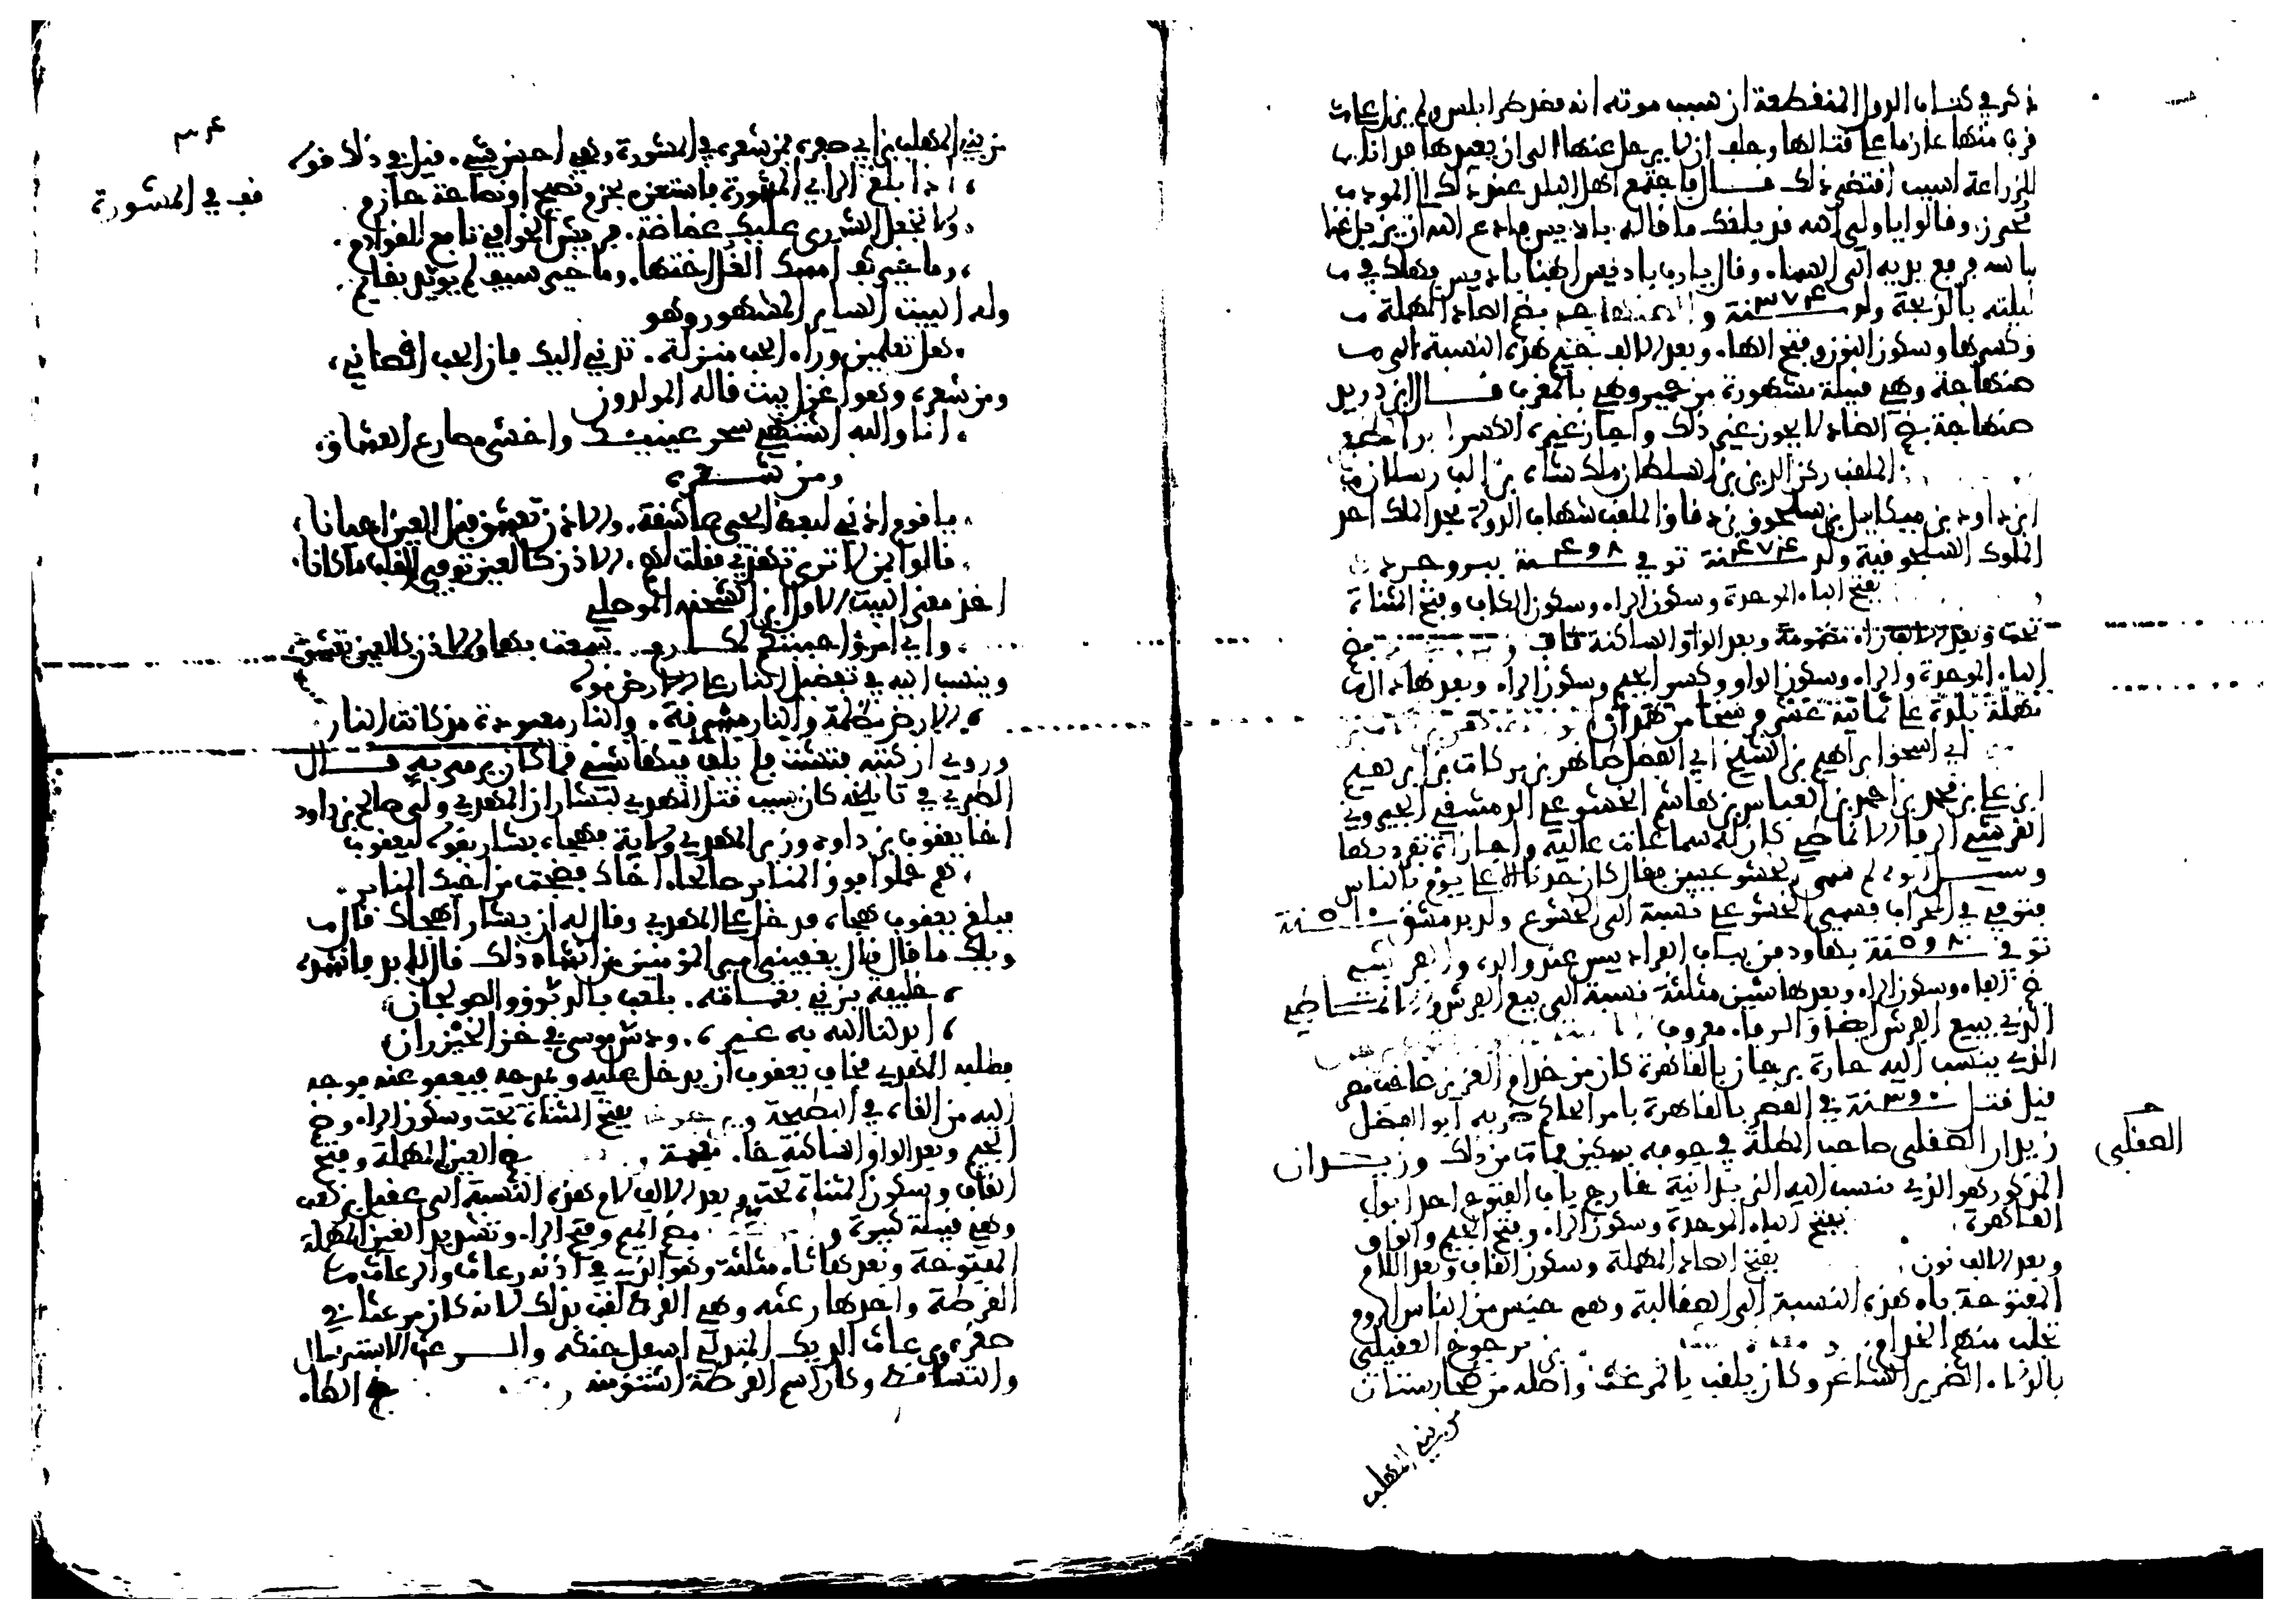 ذكر في كتاب الدول المنقطعة ان سبب موته انه قصد طرابلس ولم يزل على
قرب منها عازما على قتالها وحلف ان لا يرحل عنها الى ان يعيدها فدانا
للزراعة لسبب اقتضى ذلك قال فاجتمع اهل البلد عند ذلك الى المودب
محرز وقالوا يا ولي الله قد بلغك ما قاله باديس فادع الله ان يزيل عنا
باسه فرفع يديه الى السماء وقال يا رب باديس اكفنا باديس فهلك في
ليلته بالذبحة ولد سنة ٣٧٤ و الصنهاجي بضم الصاد المهملة
وكسرها وسكون النون وفتح الهاء وبعد الالف جيم هذه النسبة الى
صنهاجة وهي قبيلة مشهورة من حمير وهي بالمغرب قال ابن دريد
صنهاجة بضم الصاد لا يجوز غير ذلك واجاز غيره الكسر ابو المظفر
الملقب ركن الدين بن السلطان ملك شاه بن الب رسلان
ابن داود بن ميكاييل بن سلجوق بن دقاق الملقب شهاب الدولة مجد الملك احد
الملوك السلجوقية ولد سنة ٤٧٤ توفي سنة ٤٩٨ ببروجرد
بفتح الباء الموحدة وسكون الراء وسكون الكاف وفتح المثناة
تحت وبعد الالف راء مضمومة وبعد الواو الساكنة قاف و
الباء الموحدة والراء وسكون الواو وكسر الجيم وسكون الراء وبعدها دال
مهملة بلدة على ثمانية عشر فرسخا من همدان
ابي اسحق ابراهيم بن الشيخ ابي الفضل طاهر بن بركات بن ابرهيم
ابن علي بن محمد بن احمد بن العباس بن هاشم الخشوعي الدمشقي الجيروني
القرشي الرفا الانماطي كان له سماعات عالية واجازات تفرد بها
وسيل ابوه لم سمي الخشوعيين فقال كان جدنا الاعلى يوم بالناس
فتوفي في المحراب فسمي الخشوعي نسبة الى الخشوع ولد بدمشق سنة ٥١٠
توفي سنة ٥٩٨ بها ودفن بباب الفراديس عند والده والفرشي
بضم الفاء وسكون الراء وبعدها شين مثلثة نسبة الى بيع الفرش والانماطي
الذي يبيع الفرش ايضا والرفاء معروف
الذي ينسب اليه حارة برجوان بالقاهرة كان من خدام العزيز صاحب مصر
قيل قتل سنة ٣٩٠ في القصر بالقاهرة بامر الحاكم ضربه ابو الفضل
زيدان الصقلبي صاحب المظلة في جوفه بسكين فمات من ذلك وزيدان
المذكور هو الذي تنسب اليه الزيدانية خارج باب الفتوح احد ابواب
القاهرة بفتح الباء الموحدة وسكون الراء وفتح الجيم والواو
وبعد الالف نون بفتح الصاد المهملة وسكون القاف وبعد اللام
المفتوحة باء هذه النسبة الى الصقالبة وهم جنس من الناس
تجلب منها الخدام بن يرجوخ العقيلي
بالولاء الضرير الشاعر وكان يلقب بالمرعث واصله من طخارستان
من بني المهلب
الصقلبي
من بني المهلب بن ابي صفره فمن شعره في المشورة وهي احسن شيء قيل في ذلك قوله
اذا بلغ الراي المشورة فاستعن بحزم نصيح او نصاحة حازم
ولا تجعل الشورى عليك غضاضة فريش الخوافي تابع للقوادم
وما خير كف امسك الغل اختها وما خير سيف لم يويد بقايم
وله البيت الساير المشهور وهو
هل تعلمين وراء الحب منزلة تدني اليك فان الحب اقصاني
ومن شعره وهو اغزل بيت قاله المولدون
انا والله اشتهي سحر عينيك واخشى مصارع العشاق
ومن شعره
يا قوم اذني لبعض الحي عاشقة والاذن تعشق قبل العين احيانا
قالوا بمن لا ترى تهذي فقلت لهم الاذن كالعين توفي القلب ما كانا
اخذ معنى البيت الاول ابن الشحنه الموصلي
واني امرؤ احببتكم لمكارم سمعت بها والاذن كالعين تعشق
وينسب اليه في تفضيل النار على الارض قوله
الارض مظلمة والنار مشرقة والنار معبودة مذ كانت النار
وروي ان كتبه فتشت فلم يلف فيها شيء مما كان يرمى به قال
الطبري في تاريخه كان سبب قتل المهدي لبشار ان المهدي ولى صالح بن داود
اخا يعقوب بن داود وزير المهدي ولاية فهجاه بشار بقوله ليعقوب
هم حملوا فوق المنابر صالحا اخاك فضجت من اخيك المنابر
فبلغ يعقوب هجاه فدخل على المهدي وقال له ان بشار اهجاك قال
ويلك ما قال قال يعفيني امير المؤمنين من انشاد ذلك قال لا بد فانشده
خليفة يزني بعماته يلعب بالدبوق والصولجان
ابدلنا الله به غيره ودس موسى في حر الخيزران
فطلبه المهدي فخاف يعقوب ان يدخل عليه ويمدحه فيعفو عنه فوجه
اليه من القاه في البطيحة ويرجوخ بفتح المثناة تحت وسكون الراء وضم
الجيم وبعد الواو الساكنة خاء معجمة و بضم العين المهملة وفتح
القاف وسكون المثناة تحت وبعد الالف لام هذه النسبة الى عقيل بن كعب
وهي قبيلة كبيرة و بضم الميم وفتح الراء وتشديد العين المهملة
المفتوحة وبعدها ثاء مثلثة وهو الذي في اذنه رعاث والرعاث
القرطة واحدها رعثه وهي القرط لقب بذلك لانه كان مرعثا في
صغره ورعاث الديك المتدلي اسفل حنكه والرعث الاسترسال
والتساقط وكان اسم القرطة اشتق منه بضم الطاء
قف في المشورة